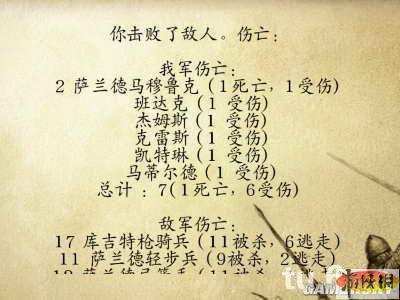 你击败了敌人。伤亡:
我军伤亡:
2 萨兰德马穆鲁克 (1死亡, 1受伤)
班达克 (1 受伤)
杰姆斯 (1 受伤)
克雷斯 (1 受伤)
凯特琳 (1 受伤)
马蒂尔德 (1 受伤)
总计 : 7(1死亡, 6受伤)
敌军伤亡:
17 库吉特枪骑兵 (11被杀, 6逃走)
11 萨兰德轻步兵 (9被杀, 2逃走)
游侠網